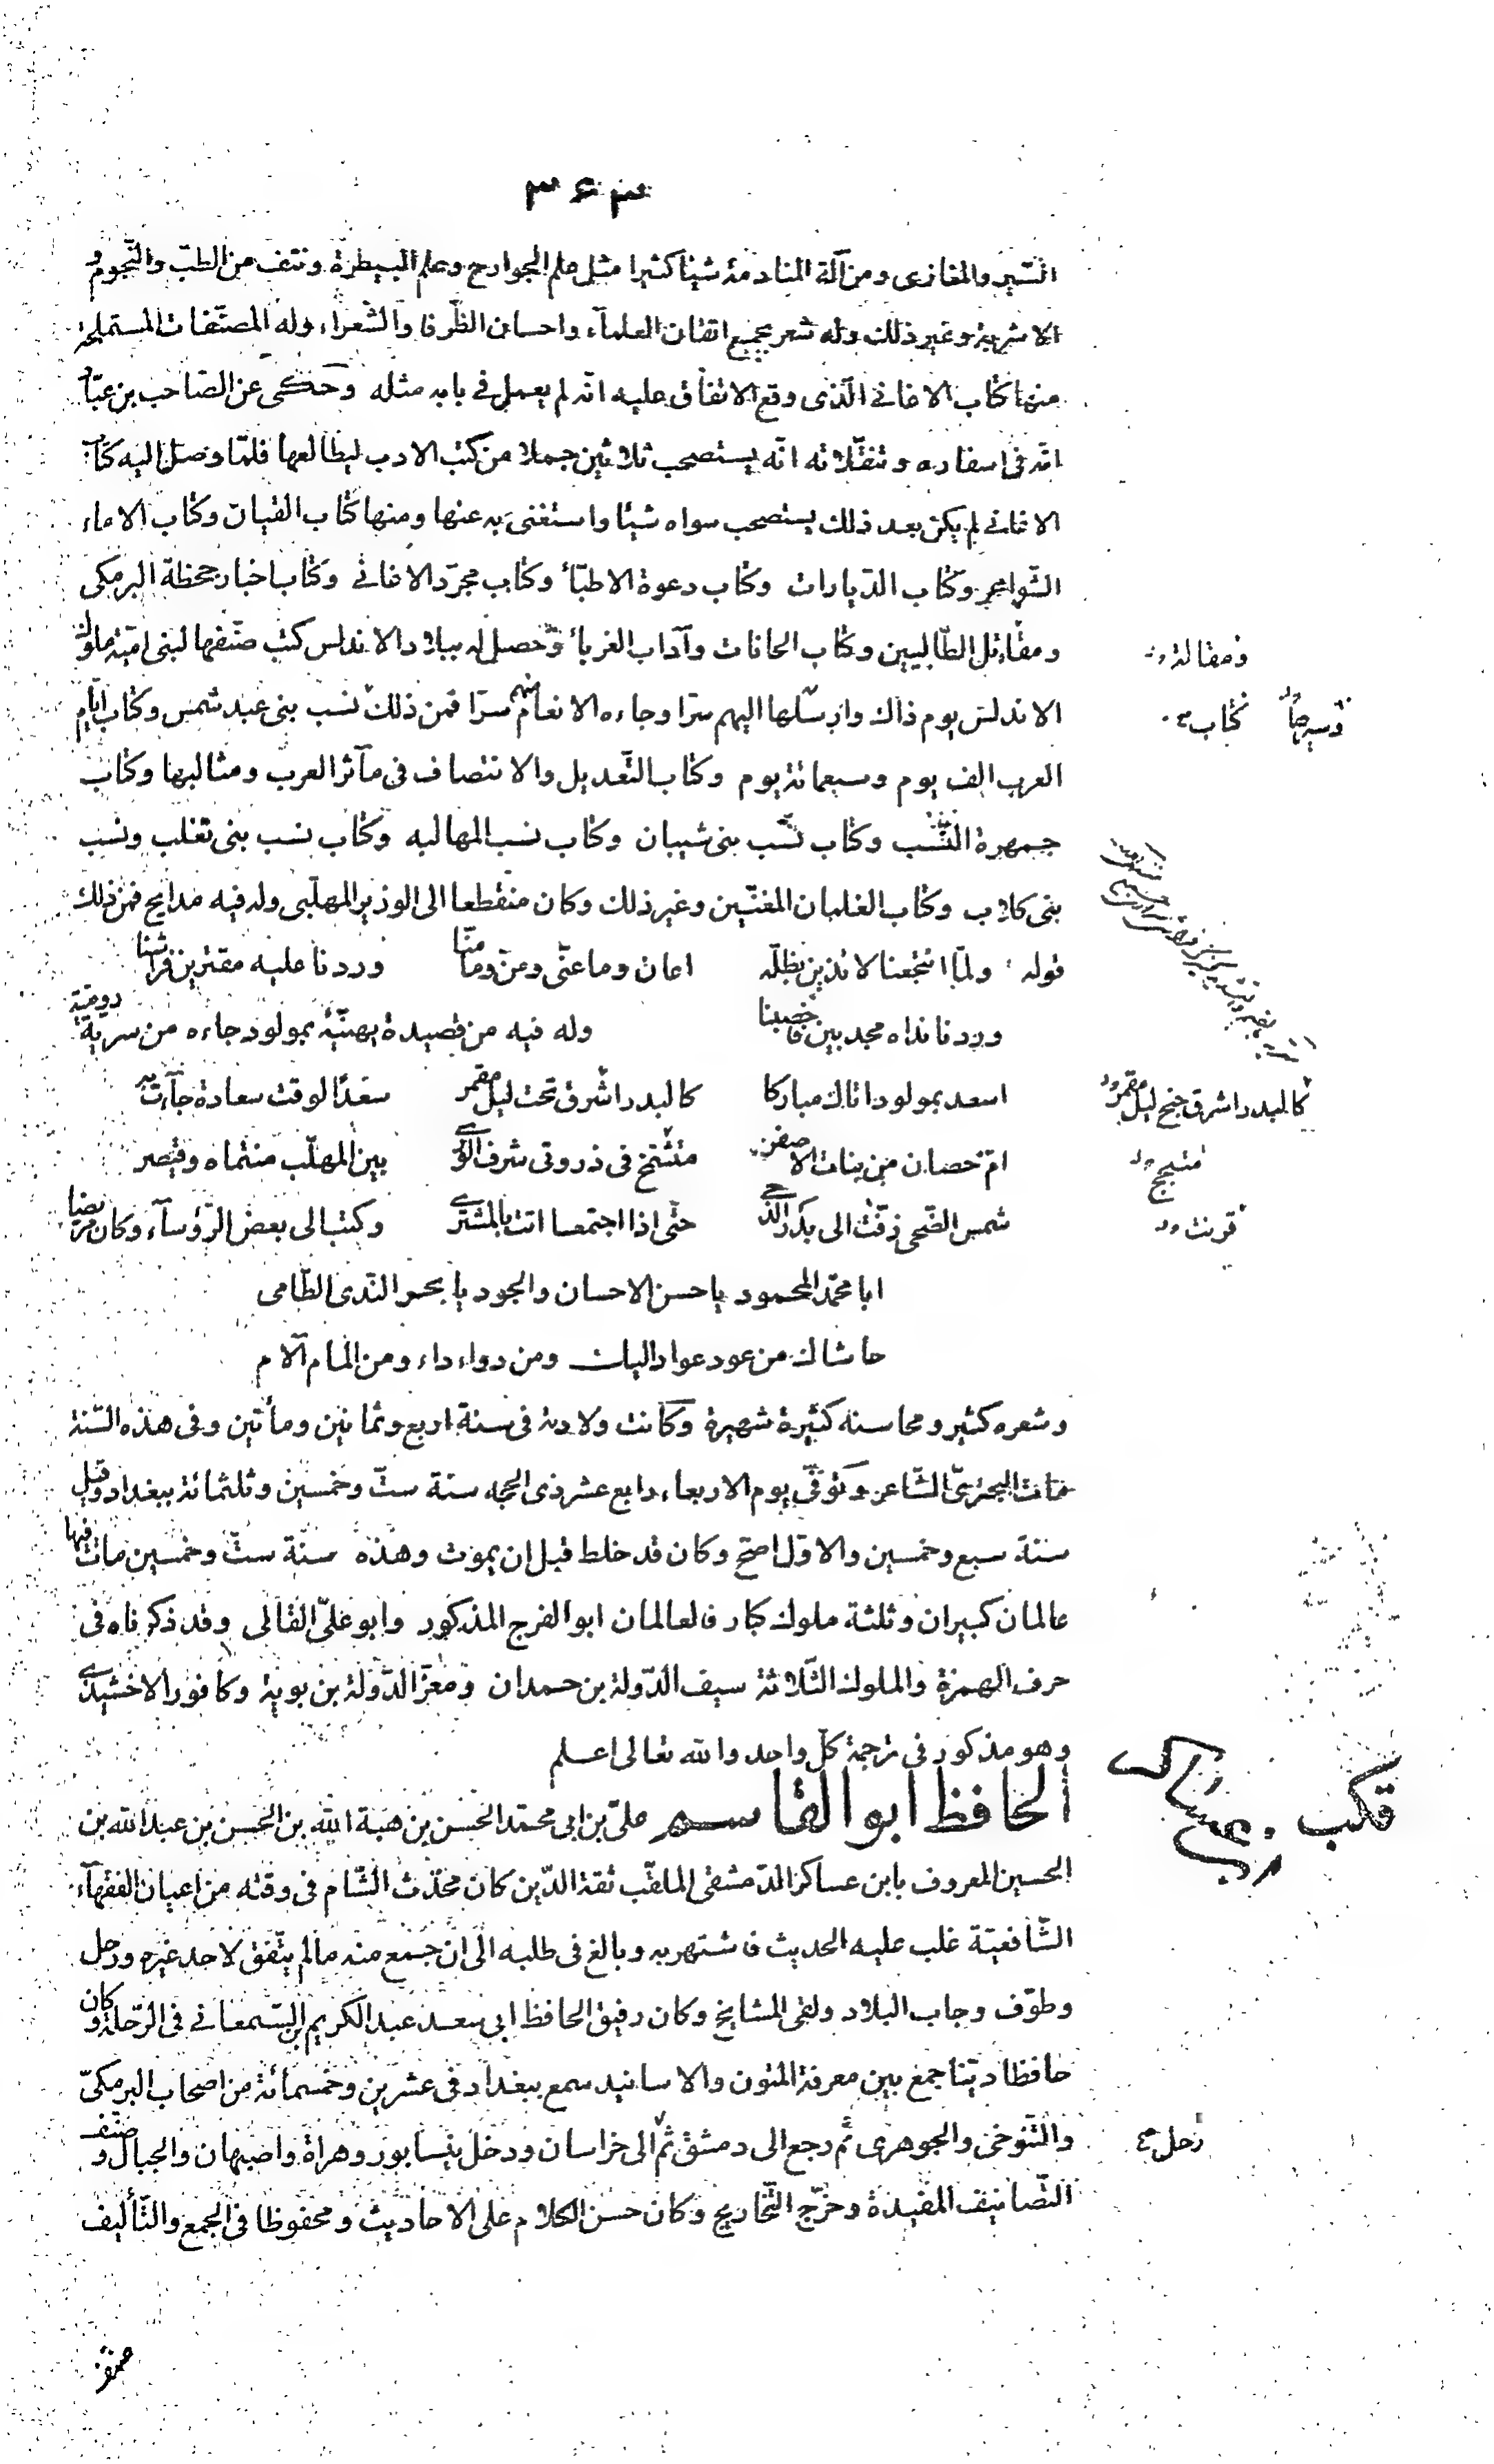 ٣۶٣
السّير والمغازى ومن آلة المنادمة شيئا كثيرا مثل علم الجوارح وعلم البيطرة ونتف من الطبّ والنّجوم و
الاشربة وغير ذلك وله شعر يجمع اتقان العلمآء واحسان الظّرفا والشّعراء وله المصنّفات المستملحة
منها كتاب الاغانى الّذى وقع الاتفاق عليه انّه لم يعمل فى بابه مثله وحكى عن الصّاحب بن عبّاد
انّه فى اسفاره وتنقّلاته انّه يستصحب ثلاثين جملا من كتب الادب ليطالعها فلمّا وصل اليه كتاب
الاغانى لم يكن بعد ذلك يستصحب سواه شيئا واستغنى به عنها ومنها كتاب القيان وكتاب الاماء
الشّواعر وكتاب الدّيارات وكتاب دعوة الاطبّأ وكتاب مجرّد الاغانى وكتاب اخبار جحظة البرمكى
ومقاتل الطّالبيين وكتاب الحانات وآداب الغربأ وحصل له ببلاد الاندلس كتب صنّفها لبنى اميّة ملوك
الاندلس يوم ذاك وارسلها اليهم سرّا وجاءه الانعام منهم سرّا فمن ذلك نسب بنى عبد شمس وكتاب ايّام
العرب الف يوم وسبعمائة يوم وكتاب التّعديل والانتصاف فى مآثر العرب ومثالبها وكتاب
جمهرة النّسب وكتاب نسب بنى شيبان وكتاب نسب المهالبه وكتاب نسب بنى تغلب ونسب
بنى كلاب وكتاب الغلمان المغنّيين وغير ذلك وكان منقطعا الى الوزير المهلّبى وله فيه مدايح فمن ذلك
قوله ولمّا انتجعنا لائذين بظلّه اعان وما عنّى ومنّ وما منّا وردنا عليه مقترين فراشنا
وردنا نداه مجدبين فاخصبنا وله فيه من قصيدة يهنّيه بمولود جاءه من سريّة روميّة
اسعد بمولود اتاك مباركا كالبدر اشرق تحت ليل مقمر سعدًا لوقت سعادة جآءت به
امّ حصان من بنات الاصفر متبّخ فى ذروتى شرف الورى بين المهلّب منتماه وقيصر
شمس الضّحى زفّت الى بدر الدّجى حتّى اذا اجتمعا اتت بالمشترى وكتب الى بعض الرّؤسآء وكان مريضا
ابا محمّد المحمود يا حسن الاحسان والجود يا بحر النّدى الطّامى
حاشاك من عود عوّاد اليك ومن دواء داء ومن المام آلام
وشعره كثير ومحاسنه كثيرة شهيرة وكانت ولادته فى سنة اربع وثمانين ومأتين وفى هذه السّنة
مات البحترىّ الشّاعر وتوفّى يوم الاربعاء رابع عشر ذى الحجه سنة ستّ وخمسين وثلثمائة ببغداد وقيل
سنة سبع وخمسين والاوّل اصحّ وكان قد خلط قبل ان يموت وهذه سنة ستّ وخمسين مات فيها
عالمان كبيران وثلثة ملوك كبار فالعالمان ابو الفرج المذكور وابو علىّ القالى وقد ذكرناه فى
حرف الهمزة والملوك الثّلاثة سيف الدّولة بن حمدان ومعزّ الدّولة بن بويه وكافور الاخشيدى
وهو مذكور فى ترجمة كلّ واحد والله تعالى اعلم
الحافظ ابو القاسم علىّ بن ابى محمّد الحسن بن هبة الله بن الحسن بن عبد الله بن
الحسين المعروف بابن عساكر الدّمشقى الملقّب ثقة الدّين كان محدّث الشّام فى وقته من اعيان الفقهآء
الشّافعيّة غلب عليه الحديث فاشتهر به وبالغ فى طلبه الى ان جمع منه ما لم يتّفق لاحد غيره ورحل
وطوّف وجاب البلاد ولقى المشايخ وكان رفيق الحافظ ابى سعد عبد الكريم بن السّمعانى فى الرّحلة وكان
حافظا ديّنا جمع بين معرفة المتون والاسانيد سمع ببغداد فى عشرين وخمسمائة من اصحاب البرمكىّ
والتّنوخى والجوهرى ثمّ رجع الى دمشق ثمّ الى خراسان ودخل نيسابور وهراة واصبهان والجبال وصنّف
التّصانيف المفيدة وخرّج التّخاريج وكان حسن الكلام على الاحاديث ومحفوظا فى الجمع والتّأليف
كتاب
كالبدر اشرق جنح ليل مقمر
رحل